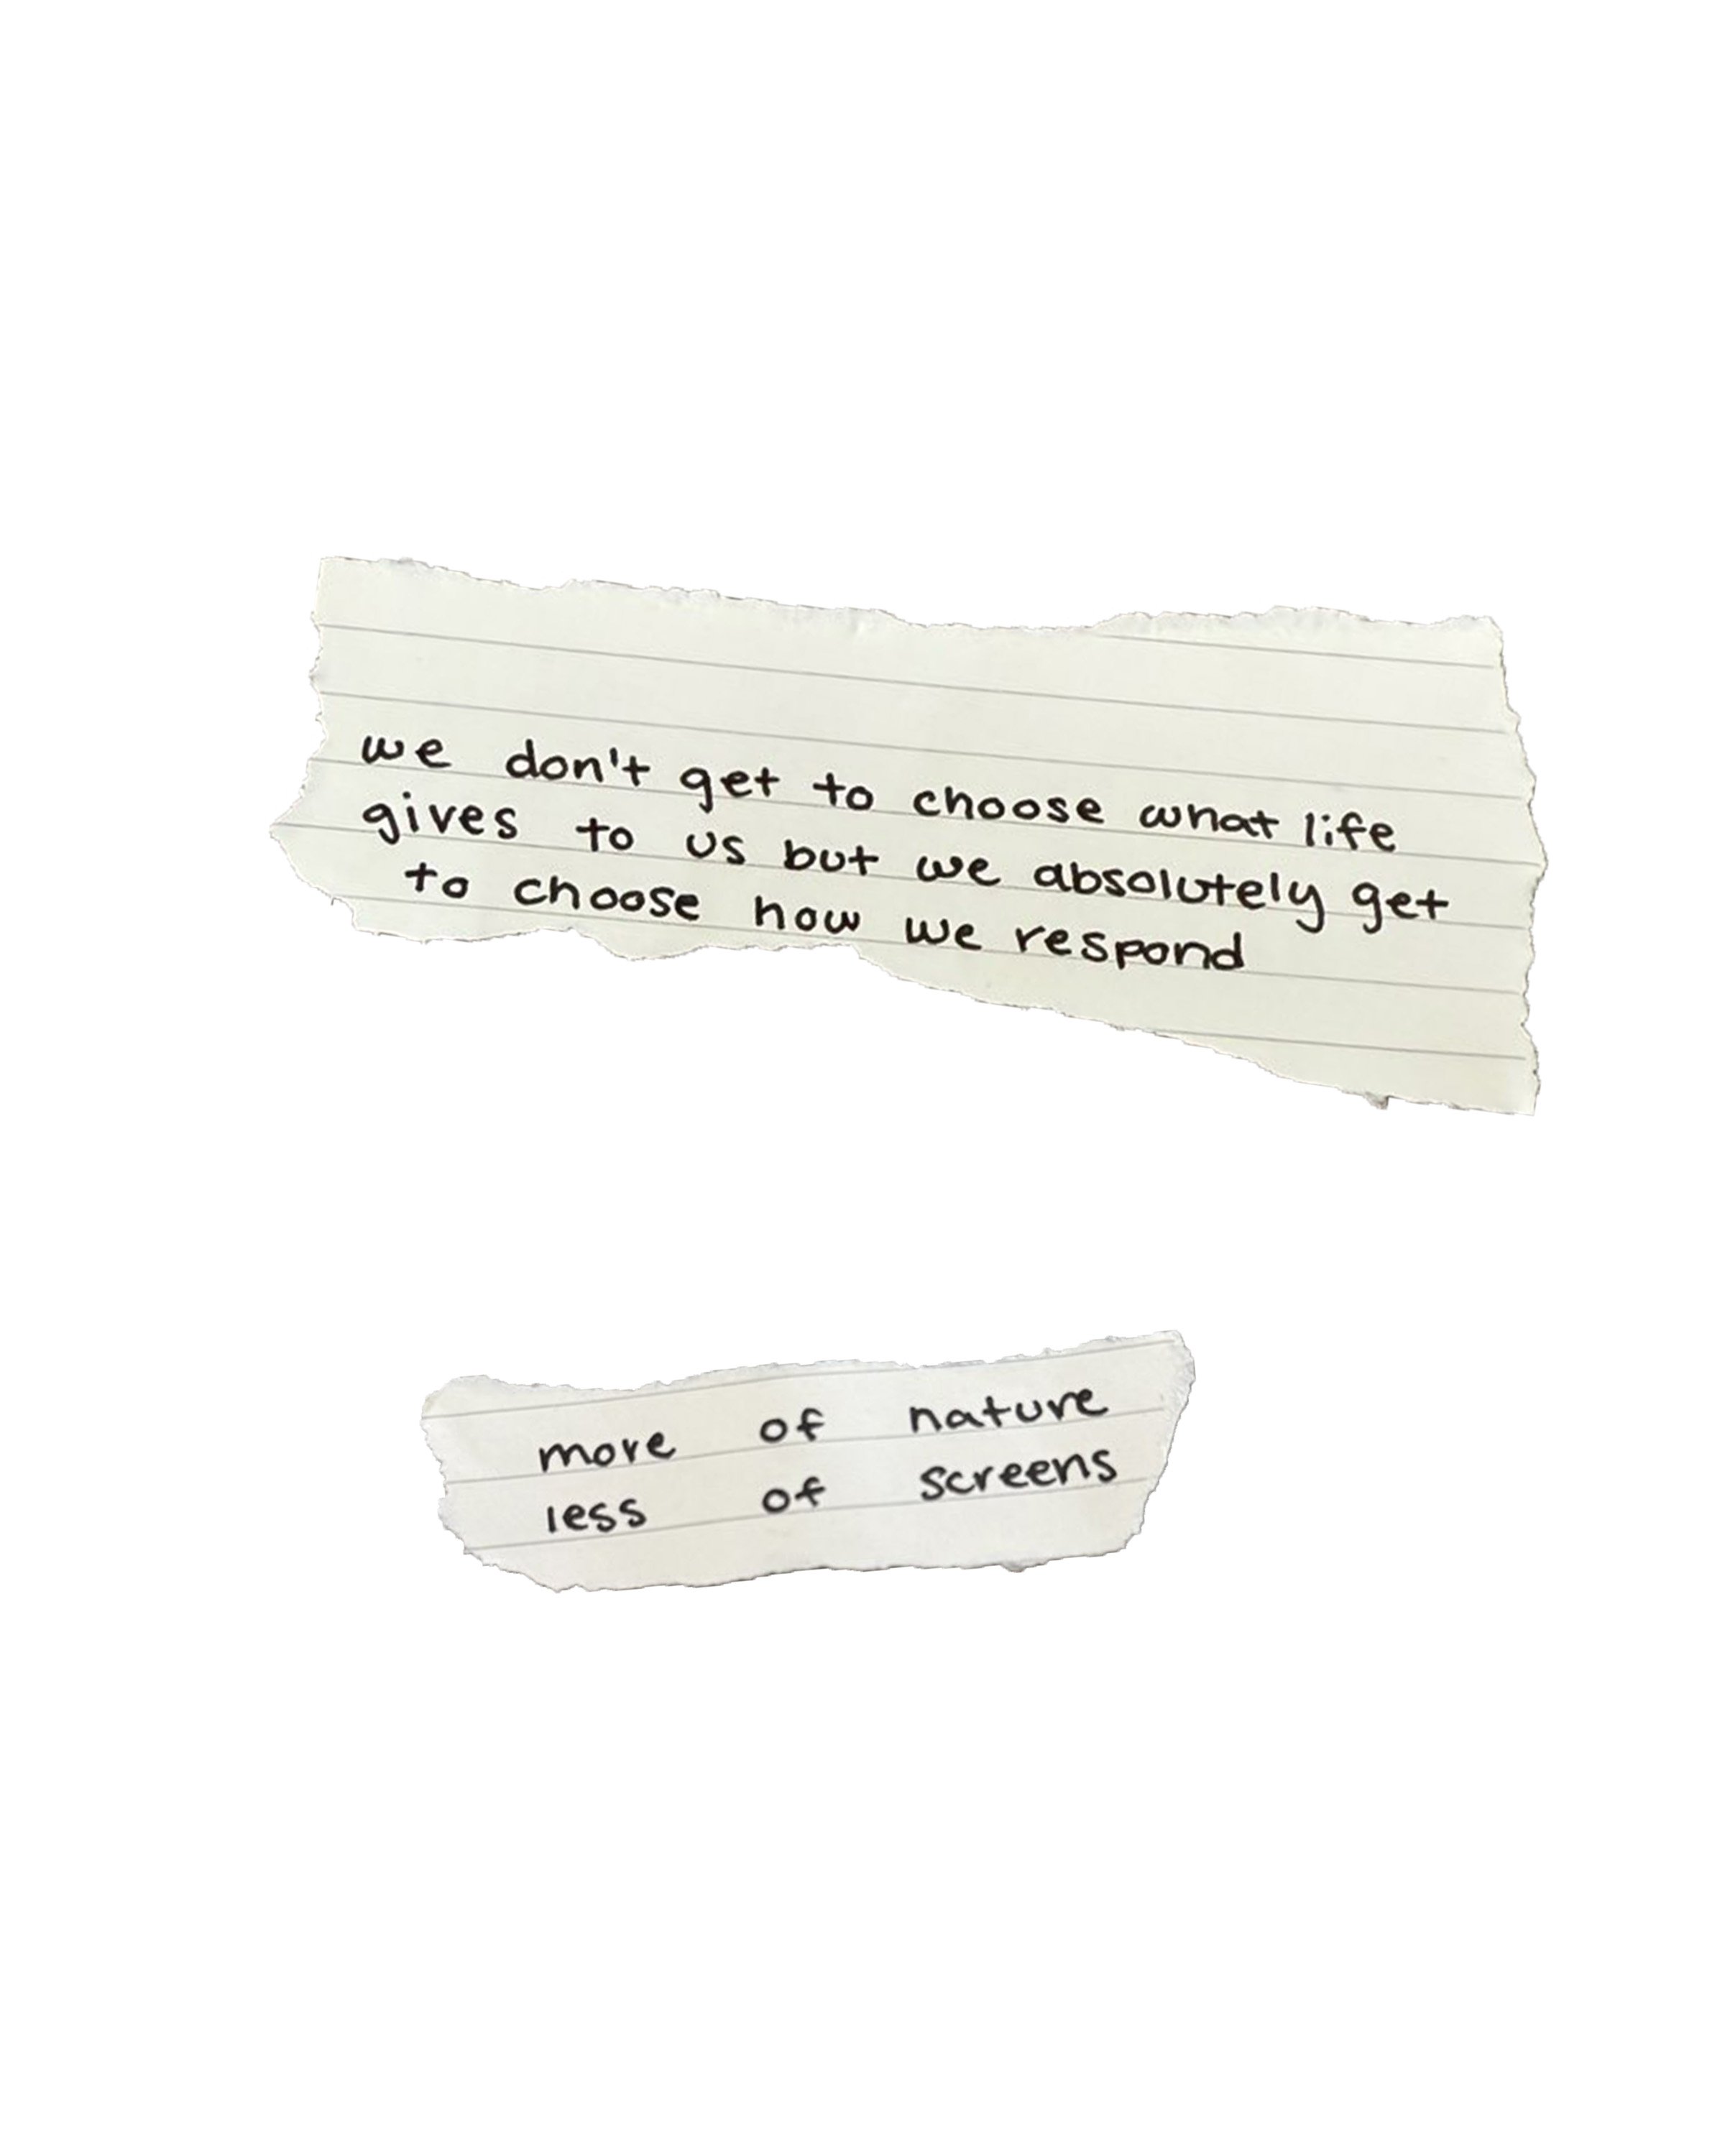 we don't get to choose what life
gives to us but we absolutely get
to choose how we respond
more of nature
less of screens